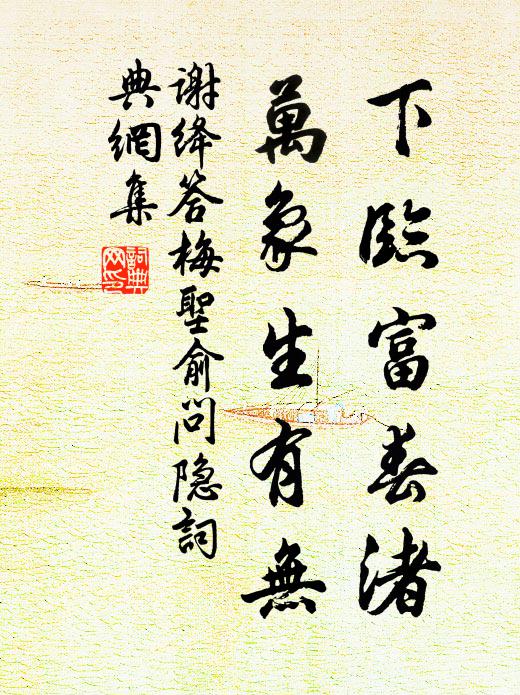 下臨富春渚
萬象生有無
謝絳答梅聖俞問隐詞
典網集
詞典網印